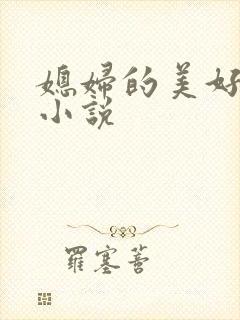 媳婦的美好
小說
羅塞菩